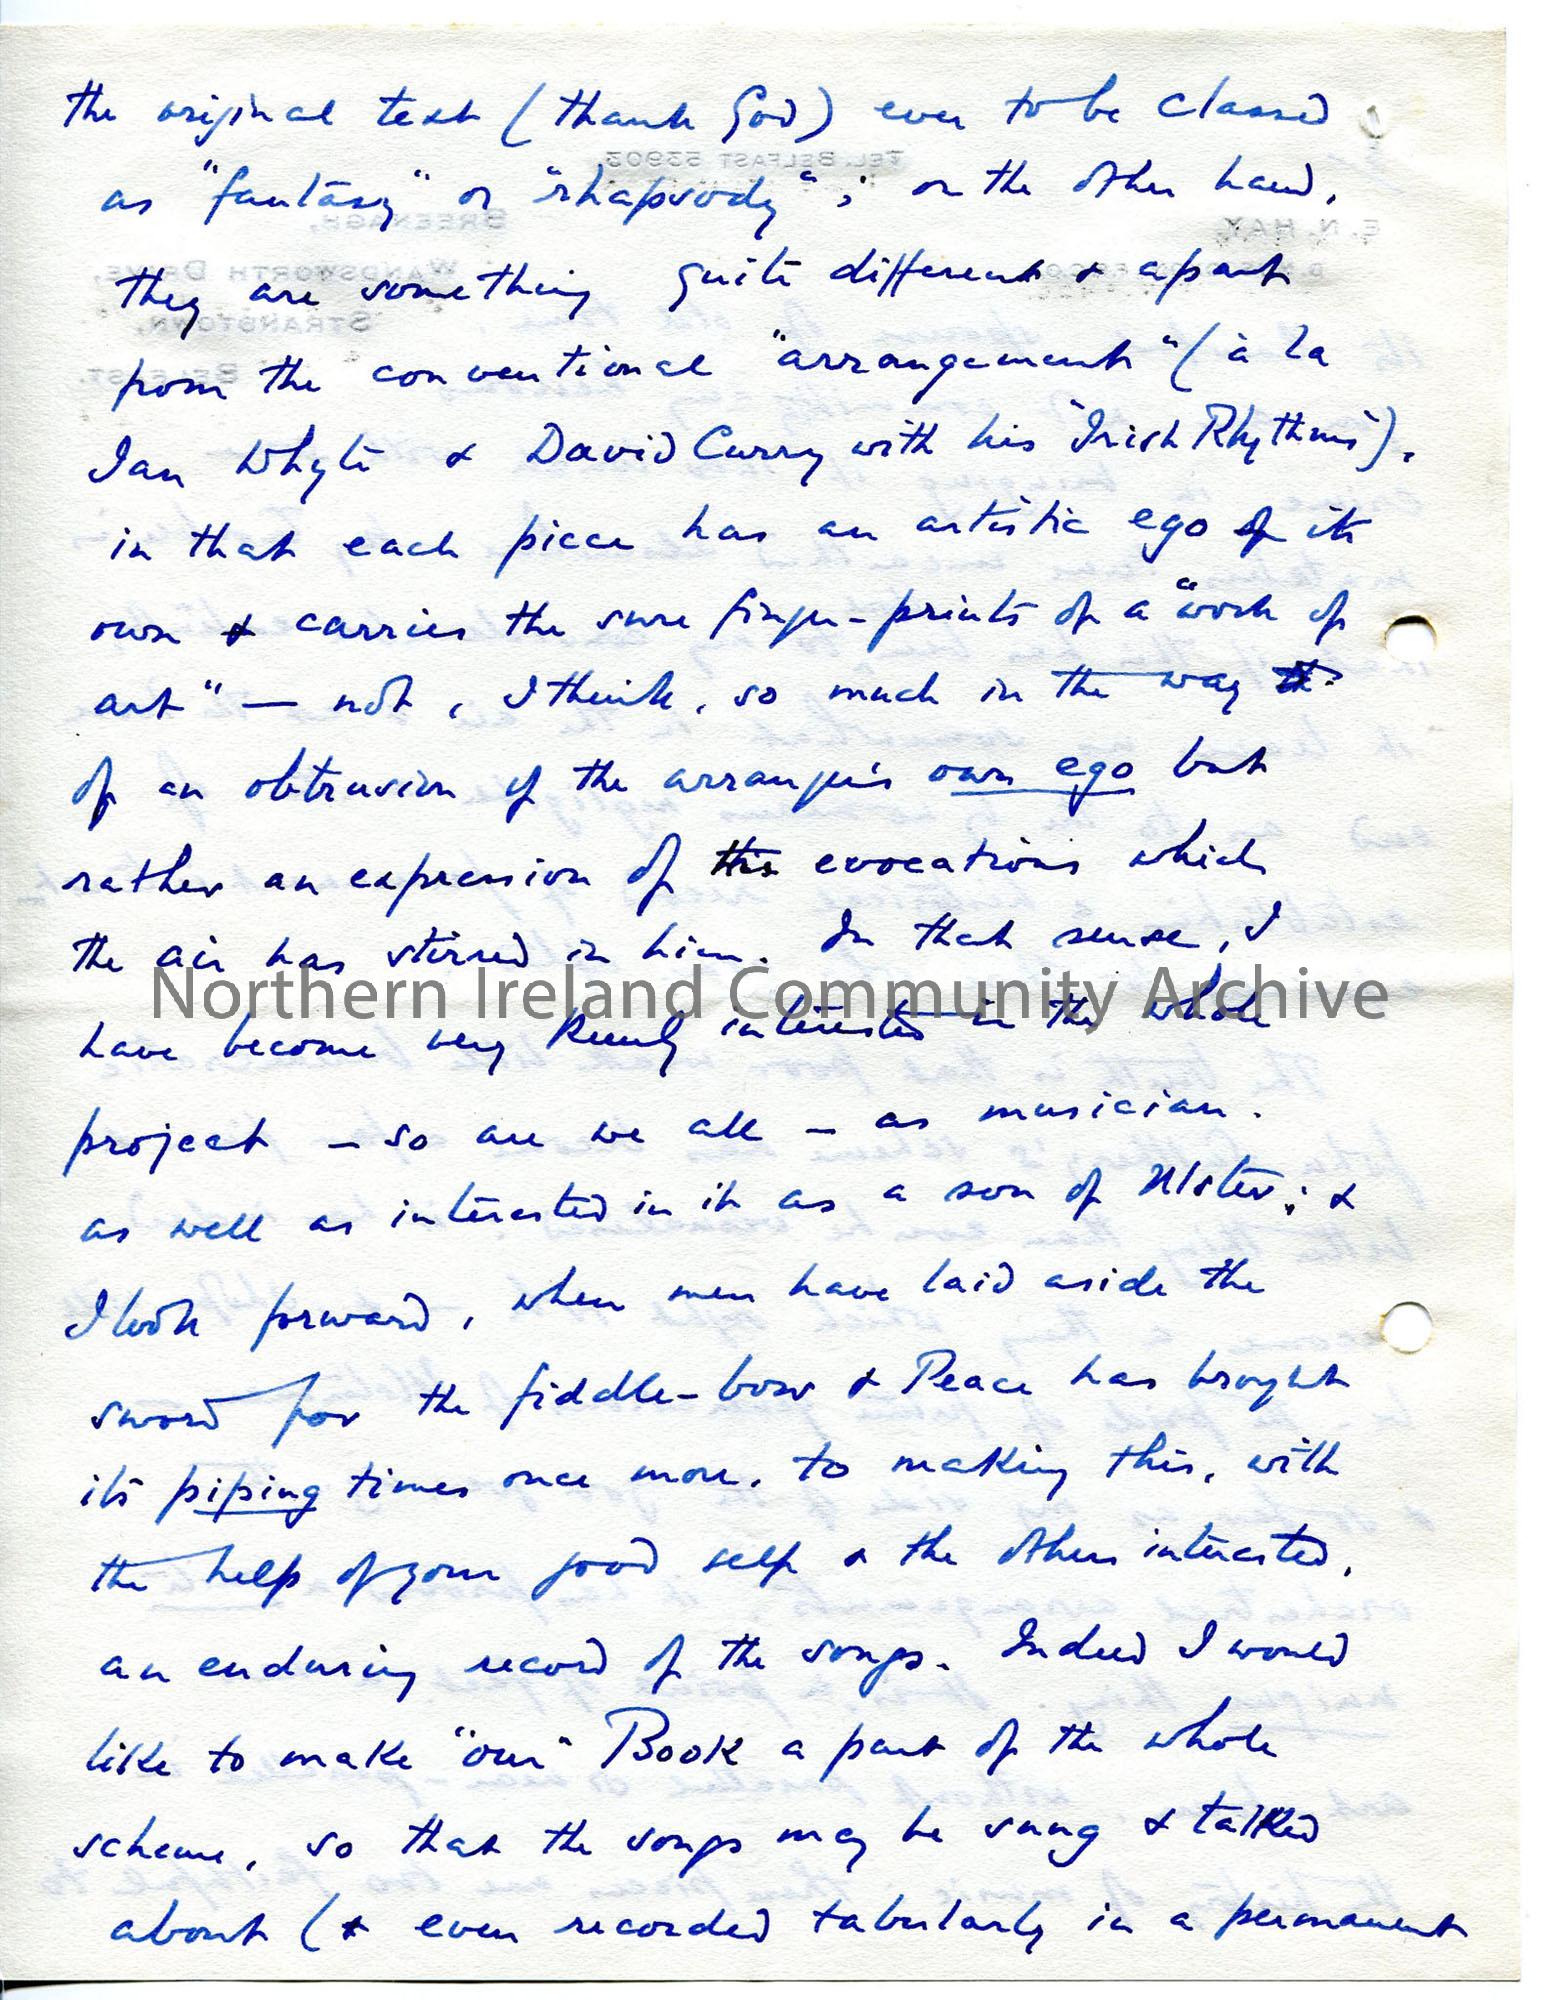 the original text (thank God) ever to be classed
as "fantasy" or "rhapsody"; on the other hand,
they are something quite different & apart
from the conventional "arrangement" (à la
Ian Whyte & David Curry with his "Irish Rhythms"),
in that each piece has an artistic ego of its
own & carries the sure finger-prints of a "work of
art" — not, I think, so much in the way
of an obtrusion of the arranger's own ego but
rather an expression of evocations which
the air has stirred in him. In that sense, I
Northern Ireland Community Archive
have become very keenly interested in the whole
project – so are we all – as musician.
as well as interested in it as a son of Ulster; &
I look forward, when men have laid aside the
sword for the fiddle-bow & Peace has brought
its piping times once more, to making this, with
the help of your good self & the others interested,
an enduring record of the songs. Indeed I would
like to make "our" Book a part of the whole
scheme, so that the songs may be sung & talked
about (& even recorded tabularly in a permanent
TEL. BELFAST 53903
E. N. HAY,
GREENAGH,
WANDSWORTH DRIVE,
STRANDTOWN,
BELFAST.